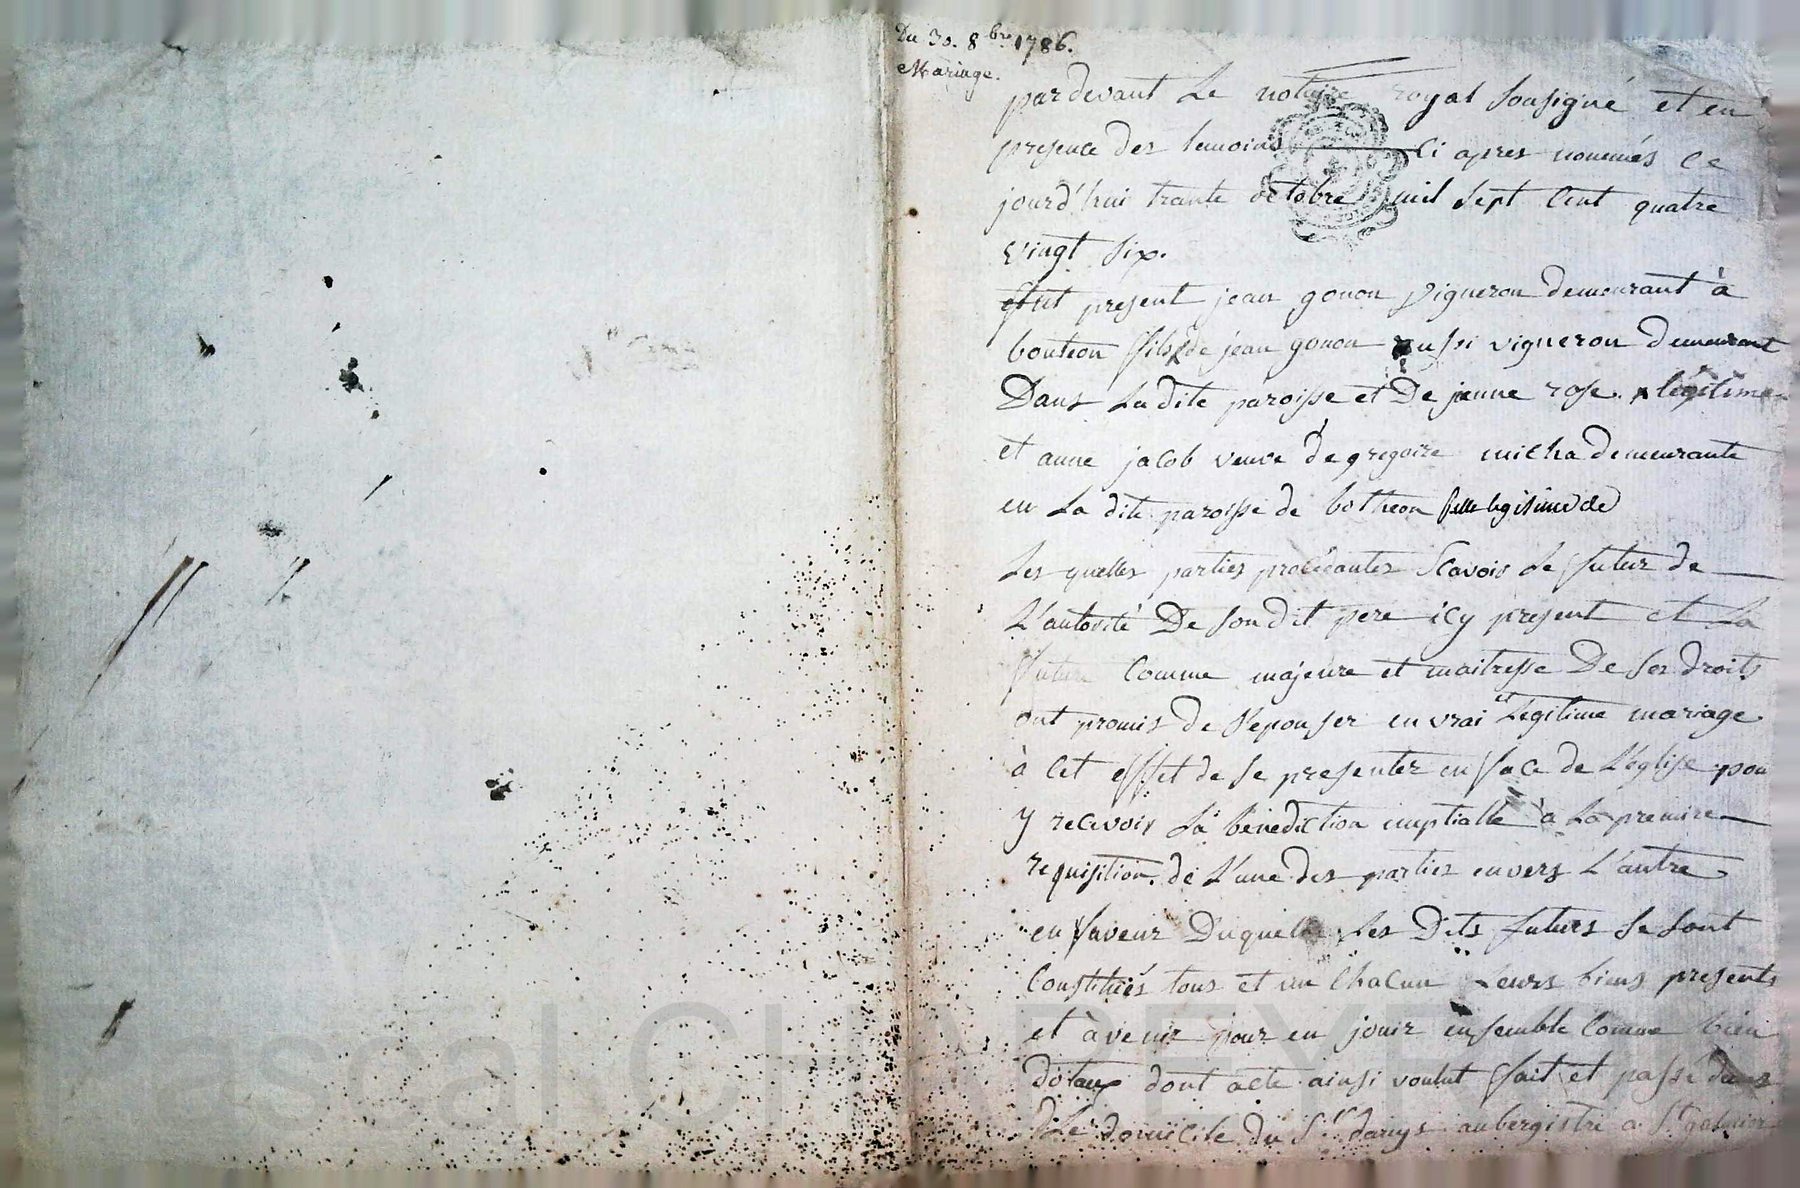 Du 30. 8bre 1786.
Mariage.
pardevant Le notaire royal sousigné et en
presence des temoins ci apres nommés ce
jourd'hui trante octobre mil sept cent quatre
vingt six.
fut present jean gonon vigneron demeurant à
bouteon fils de jean gonon aussi vigneron demeurant
Dans La dite paroisse et De jeanne rose. legitime
et anne jacob veuve de gregoire micha demeurante
en La dite paroisse de botheon fille legitime de
Les quelles parties procédantes Scavoir Le futur de
L'autorité De son dit pere icy present et La
future comme majeure et maitresse De ses droits
ont promis de s'epouser en vrai et Legitime mariage
à cet effet de se presenter en face de L'église pour
y recevoir La bénédiction nuptialle à La premire
requisition de L'une des parties envers L'autre
en faveur Duquel Les Dits futurs se sont
constitués tous et un chacun Leurs biens presents
et àvenir pour en jouir ensemble comme bien
dotaux dont acte ainsi voulut fait et passé dans
Le domicile du Sr danys aubergiste a St galmier
Pascal CHAPEYRON